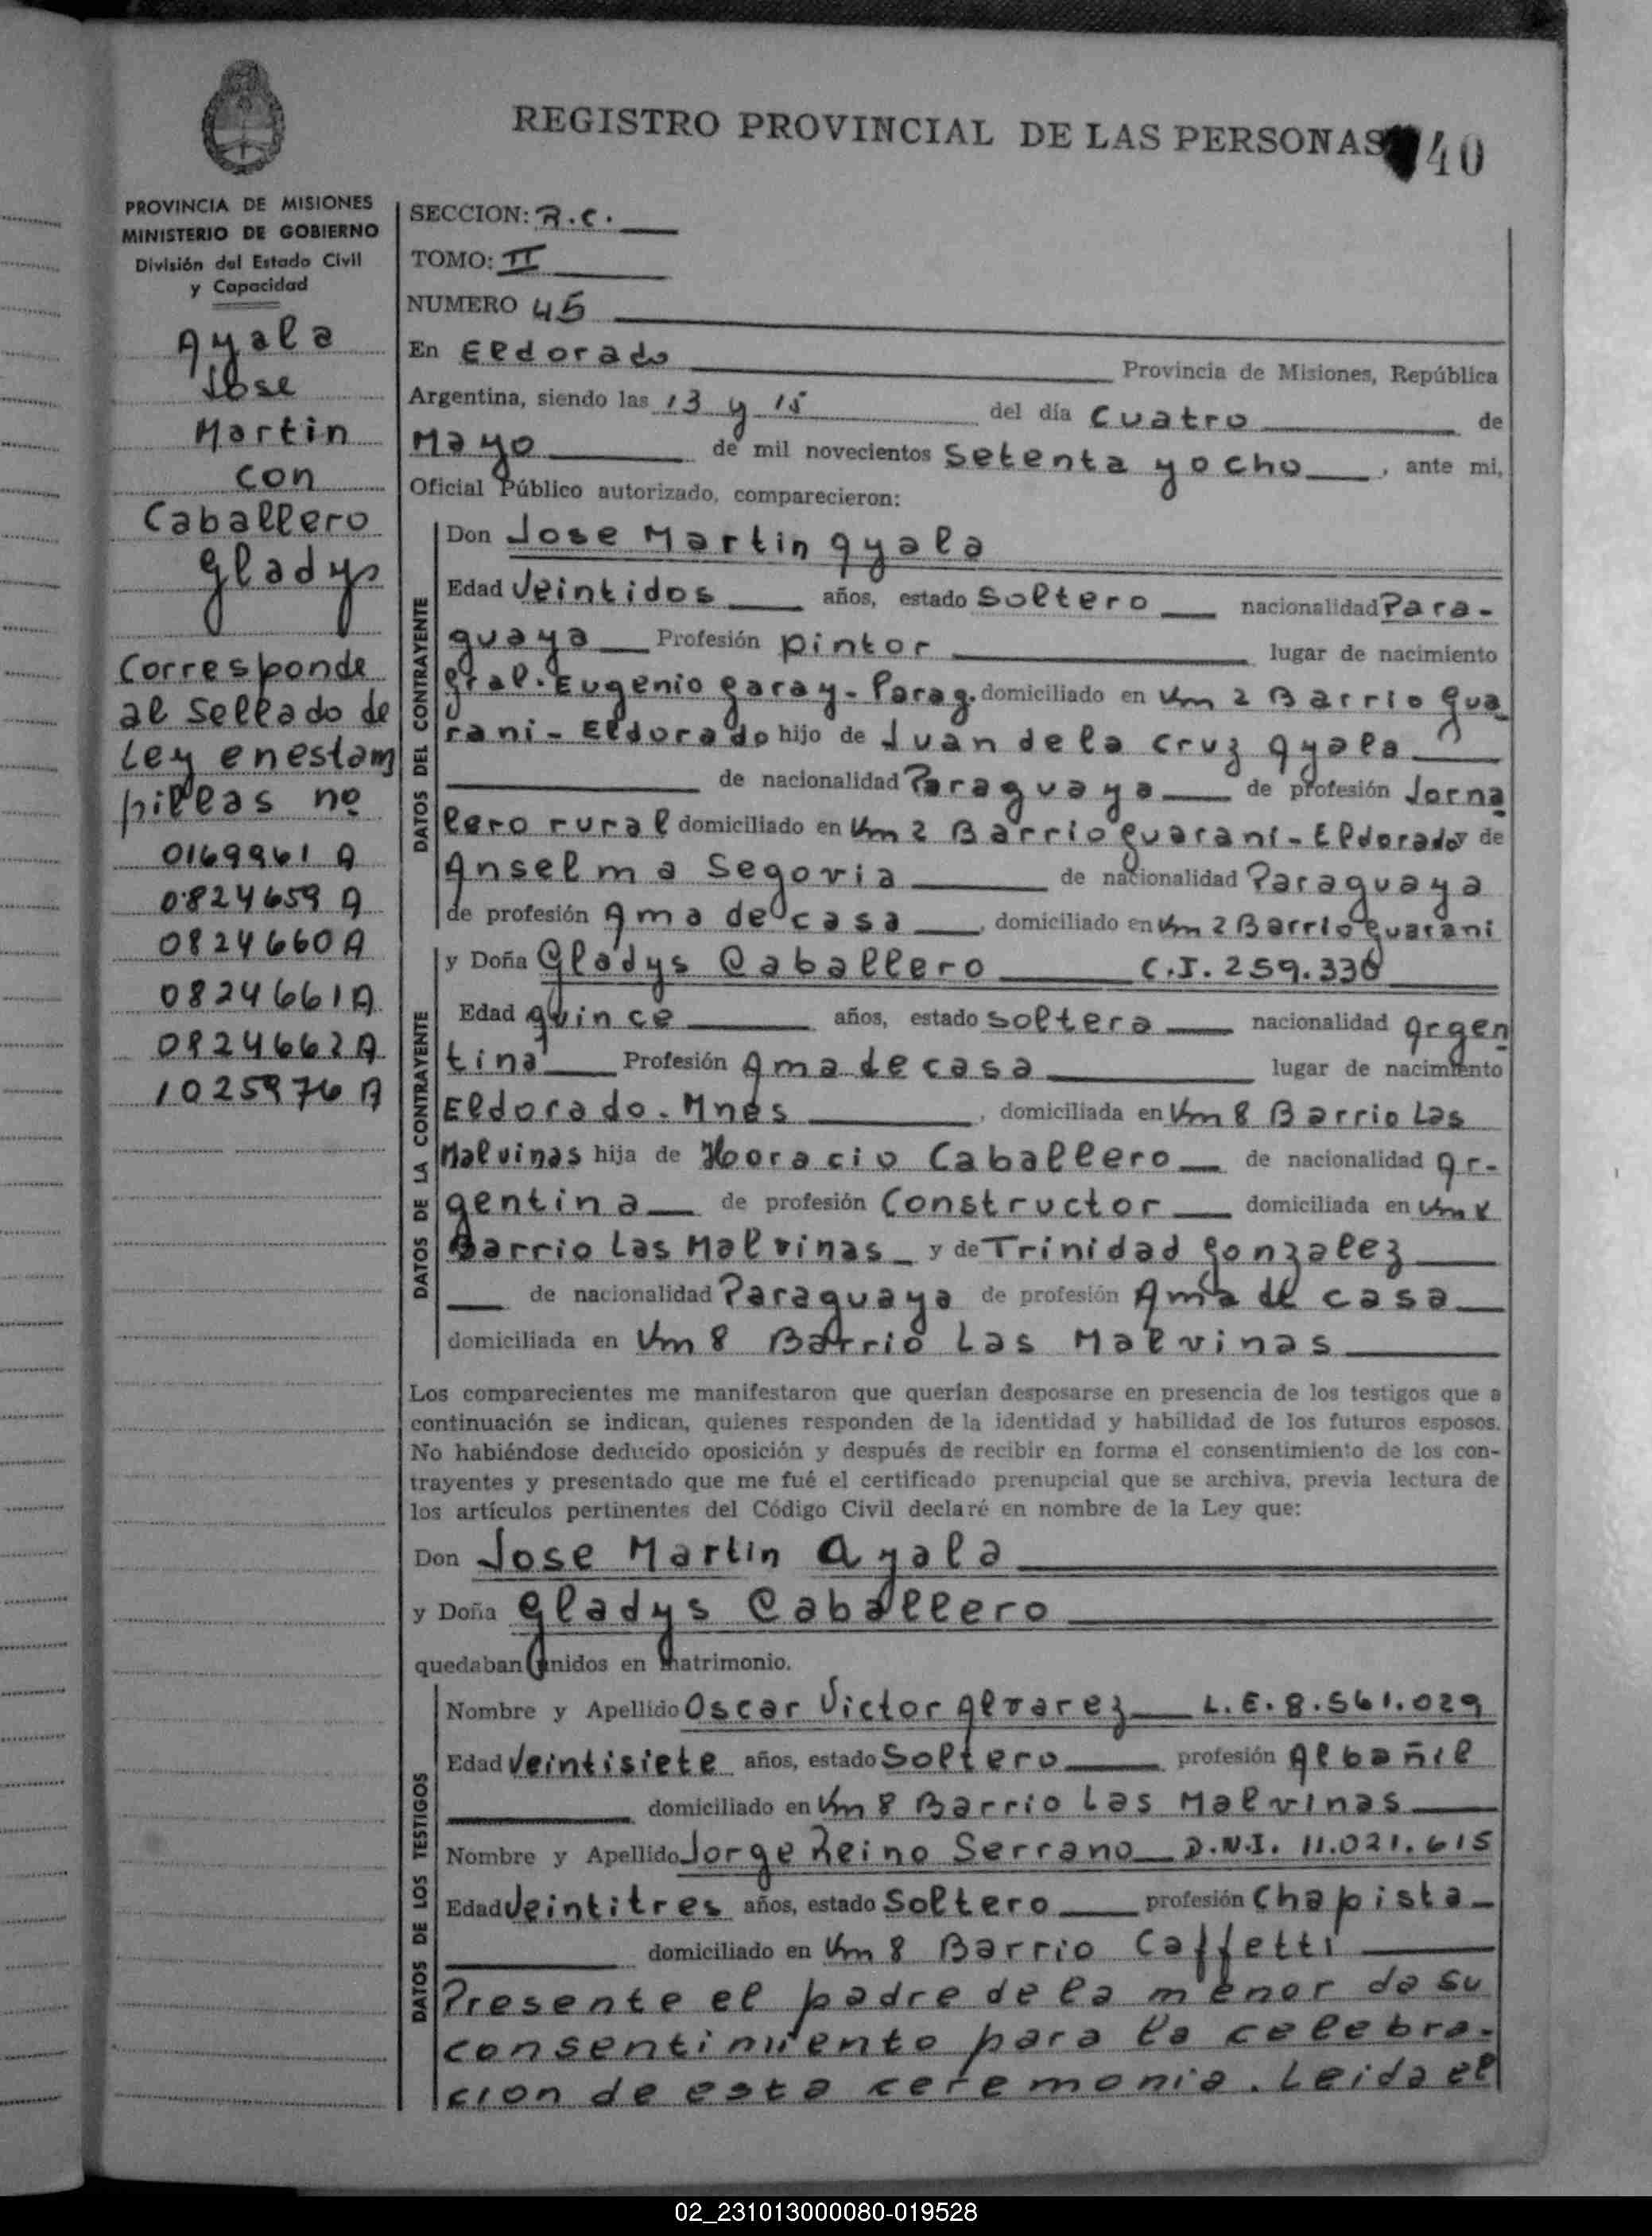 REGISTRO PROVINCIAL DE LAS PERSONAS 40
PROVINCIA DE MISIONES
MINISTERIO DE GOBIERNO
División del Estado Civil
y Capacidad
Ayala
Jose
Martin
con
Caballero
Gladys
Corresponde
al Sellado de
Ley en estam
pillas no
0169961 A
0824659 A
0824660 A
0824661 A
0824662 A
1025976 A
SECCION: R.C.
TOMO: II
NUMERO 45
En Eldorado Provincia de Misiones, República
Argentina, siendo las 13 y 15 del día Cuatro de
Mayo de mil novecientos Setenta y ocho, ante mi,
Oficial Público autorizado, comparecieron:
DATOS DEL CONTRAYENTE
Don Jose Martin Ayala
Edad Veintidos años, estado Soltero nacionalidad Para-
guaya Profesión pintor lugar de nacimiento
Gral. Eugenio Garay - Parag. domiciliado en Km 2 Barrio Gua
rani - Eldorado hijo de Juan de la Cruz Ayala
de nacionalidad Paraguaya de profesión Jorna
lero rural domiciliado en Km 2 Barrio Guarani - Eldorado y de
Anselma Segovia de nacionalidad Paraguaya
de profesión Ama de casa, domiciliado en Km 2 Barrio Guarani
DATOS DE LA CONTRAYENTE
y Doña Gladys Caballero C.I. 259.336
Edad quince años, estado soltera nacionalidad Argen
tina Profesión Ama de casa lugar de nacimiento
Eldorado. Mnes, domiciliada en Km 8 Barrio Las
Malvinas hija de Horacio Caballero de nacionalidad Ar-
gentina de profesión Constructor domiciliada en Km 8
Barrio Las Malvinas y de Trinidad Gonzalez
de nacionalidad Paraguaya de profesión Ama de casa
domiciliada en Km 8 Barrio Las Malvinas
Los comparecientes me manifestaron que querían desposarse en presencia de los testigos que a
continuación se indican, quienes responden de la identidad y habilidad de los futuros esposos.
No habiéndose deducido oposición y después de recibir en forma el consentimiento de los con-
trayentes y presentado que me fué el certificado prenupcial que se archiva, previa lectura de
los artículos pertinentes del Código Civil declaré en nombre de la Ley que:
Don Jose Martin Ayala
y Doña Gladys Caballero
quedaban unidos en matrimonio.
DATOS DE LOS TESTIGOS
Nombre y Apellido Oscar Victor Alvarez L.E. 8.561.029
Edad Veintisiete años, estado Soltero profesión Albañil
domiciliado en Km 8 Barrio Las Malvinas
Nombre y Apellido Jorge Reino Serrano D.N.I. 11.021.615
Edad Veintitres años, estado Soltero profesión Chapista
domiciliado en Km 8 Barrio Caffetti
Presente el padre de la menor da su
consentimiento para la celebra-
cion de esta ceremonia. Leida el
02_231013000080-019528